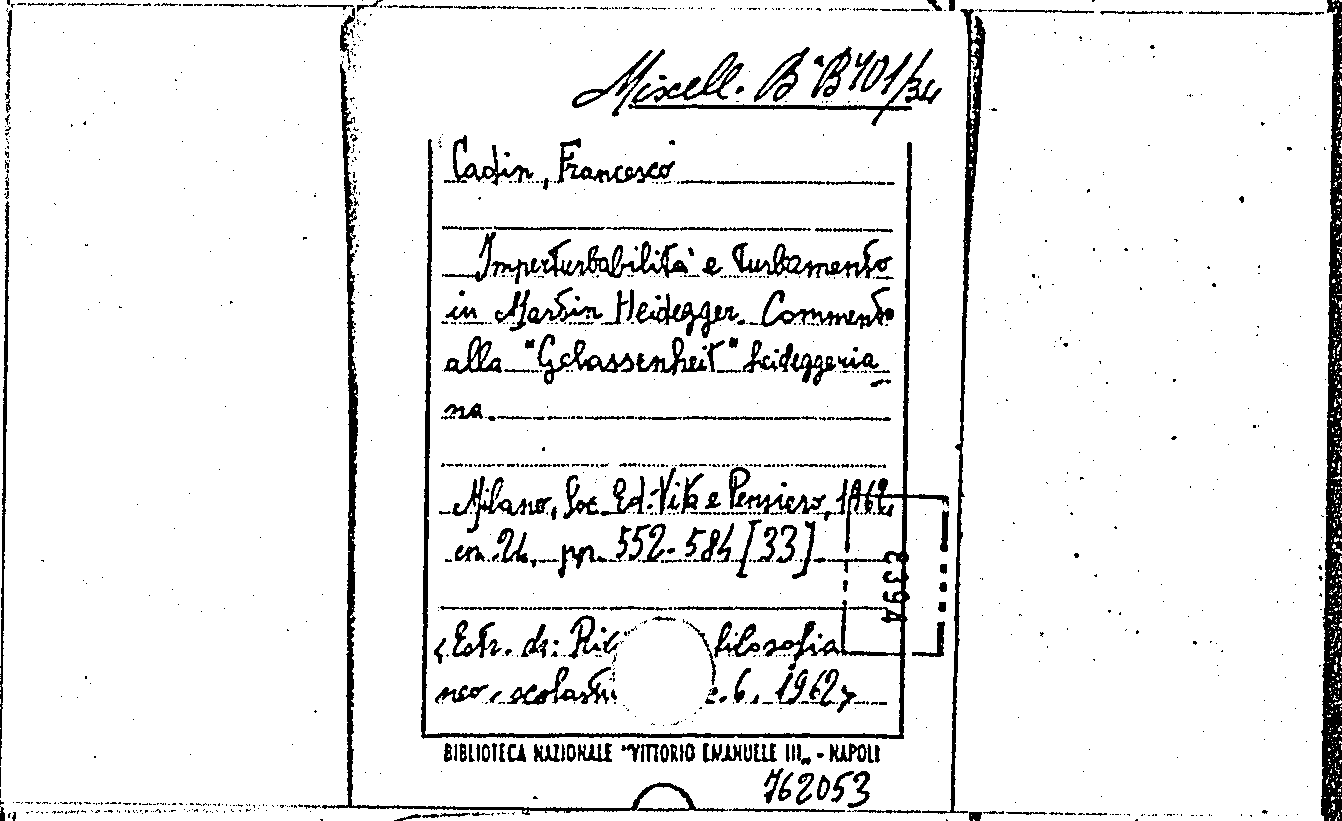 Miscell. B B 701/34
Cadin, Francesco
Imperturbabilità e turbamento
in Martin Heidegger. Commento
alla "Gelassenheit" heideggeria
na.
Milano, Soc. Ed. Vita e Pensiero, 1962,
cm. 24, pp. 552-584 [33]
(Estr. da: filosofia
neo-scolasti .6. 1962)
2394
BIBLIOTECA NAZIONALE "VITTORIO EMANUELE III„ - NAPOLI
762053